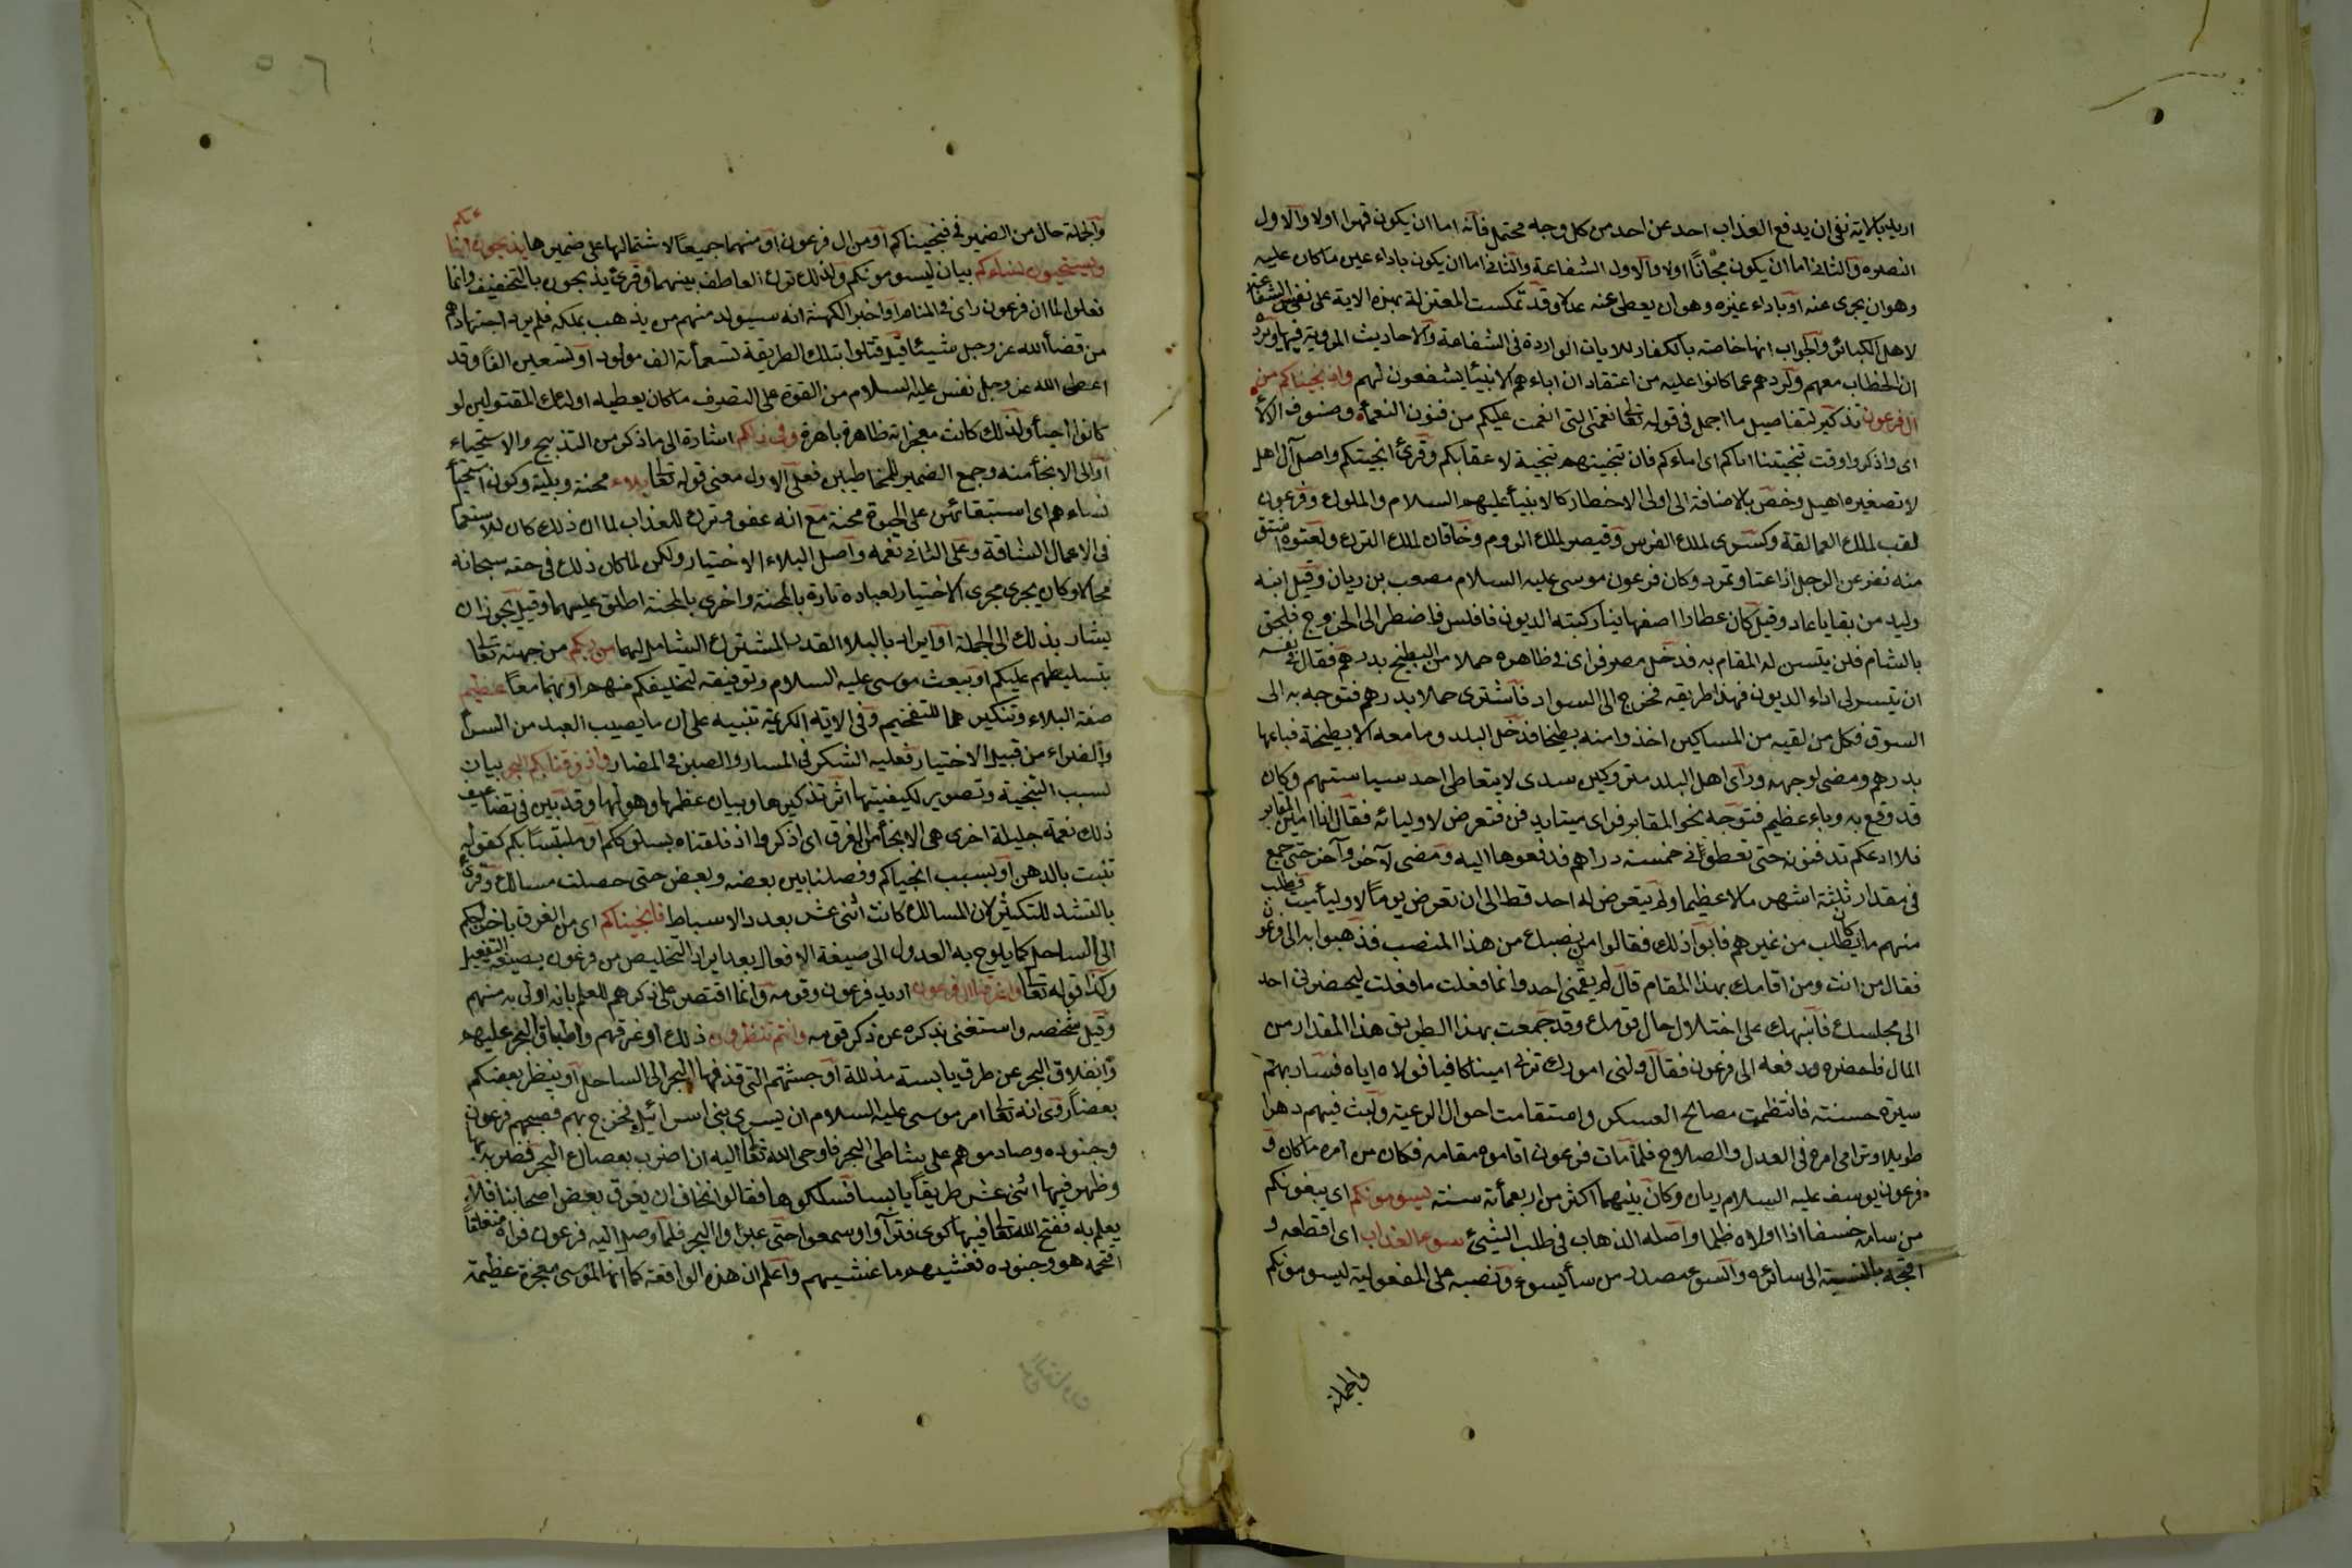 اريد بالاية نفى ان يدفع العذاب احد عن احد من كل وجه محتمل فانه اما ان يكون قهرا اولا والاول
النصره والثانى اما ان يكون مجانا اولا والاول الشفاعة والثانى اما ان يكون باداء عين ما كان عليه
وهو ان يجزى عنه او باداء غيره وهو ان يعطى عنه عدلا وقد تمكست المعتزلة بهزه الاية على نفى الشفاعة
لاهل الكبائر والجواب انها خاصته بالكفار للايات الواردة فى الشفاعة والاحاديث المروية فيها ويرد
ان الخطاب معهم ولردهم عما كانوا عليه من اعتقاد ان اباءهم الانبيأ يشفعون لهم واذ نجيناكم من
ال فرعون تذكير لتفاصيل ما اجمل فى قوله تعا نعمتى التى انعمت عليكم من فنون النعمأ وصنوف الالأ
اى واذكروا وقت تنجيتنا اياكم اى اباءكم فان تنجيتهم تنجية لاعقابكم وقرئ انجيتكم واصل آل اهل
لا تصغيره اهيل وخص بالاضافة الى اولى الاخطار كالانبيأ عليهم السلام والملوك وفرعون
لقب لملك العمالقة وكسرى لملك الفرس وقيصر لملك الروم وخاقان لملك الترك ولعتوه اشتق
منه تفرعن الرجل اذا عتا وتمرد وكان فرعون موسى عليه السلام مصعب بن ريان وقيل ابنه
وليد من بقايا عاد وقيل كان عطارا اصفهانيا ركبته الديون فافلس فاضطر الى الخروج فلحق
بالشام فلن يتسن له المقام به فدخل مصر فراى فى ظاهره حملا من البطيخ بدرهم فقال فى نفسه
ان تيسر لى اداء الديون فهذا طريقه فخرج الى السواد فاشترى حملا بدرهم فتوجه به الى
السوق فكل من لقيه من المساكين اخذوا منه بطيخا فدخل البلد وما معه الا بطيخة فباعها
بدرهم ومضى لوجهه وراى اهل البلد متروكين سدى لا يتعاطى احد سياستهم وكان
قد وقع به وباء عظيم فتوجه نحو المقابر فراى ميتا يدفن فتعرض لاوليائه فقال انا امين المقابر
فلا ادعكم تدفنونه حتى تعطونى خمسته دراهم فدفعوها اليه ومضى لآخر وآخر حتى جمع
فى مقدار ثلثة اشهر مالا عظيما ولم يتعرض له احد قط الى ان تعرض يوما لاوليأ ميت فطلب
منهم ما كان يطلب من غيرهم فابوا ذلك فقالوا من نصبك من هذا المنصب فذهبوا به الى فرعون
فقال من انت ومن اقامك بهذا المقام قال لم يقمنى احد وانما فعلت ما فعلت ليحضرنى احد
الى مجلسك فانبهك على اختلال حال قومك وقد جمعت بهذا الطريق هذا المقدار من
المال فاحضره ودفعه الى فرعون فقال ولنى امورك ترنى امينا كافيا فولاه اياه فسار بهم
سيرة حسنته فانتظمت مصالح العسكر واستقامت احوال الرعية ولبث فيهم دهرا
طويلا وترامى امره فى العدل والصلاح فلما مات فرعون اقاموه مقامه فكان من امره ما كان و
فرعون يوسف عليه السلام ريان وكان بينهما اكثر من اربعمأته سنته يسومونكم اى يبغونكم
من سامه خسفا اذا اولاه ظلما واصله الذهاب فى طلب الشيئ سوء العذاب اى افظعه و
اقبحه بالنسبة الى سائره والسوء مصدر من سأ يسوء ونصبه على المفعولية ليسومونكم
والجملة
والجملة حال من الضمير فى فنجيناكم او من ال فرعون او منهما جميعا لاشتمالها على ضميرهما يذبحون ابناءكم
ويستحيون نساءكم بيان ليسومونكم ولذلك ترك العاطف بينهما وقرئ يذبحون بالتخفيف وانما
فعلوا لما ان فرعون راى فى المنام او اخبر الكهنة انه سيولد منهم من يذهب بملكه فلم يرد اجتهادهم
من قضأ الله عز وجل شيئا قيل قتلوا بتلك الطريقة تسعمأته الف مولود او تسعين الفا وقد
اعطى الله عز وجل نفس عليه السلام من القوة على التصرف ما كان يعطيه اولئك المقتولين لو
كانوا احيأ ولذلك كانت معجزاته ظاهرة باهرة وفى ذلكم اشارة الى ما ذكر من التذبيح والاستحياء
او الى الانجأ منه وجمع الضمير للمخاطبين فعلى الاول معنى قوله تعا بلاء محنة وبلية وكون استحيأ
نساءهم اى استبقائهن على الحيوة محنة مع انه عفو وترك للعذاب لما ان ذلك كان للاستعما
فى الاعمال الشاقة وعلى الثانى نعمه واصل البلاء الاختيار ولكن لما كان ذلك فى حقه سبحانه
محالا وكان يجرى مجرى الاختيار لعباده تارة بالمحنة واخرى بالمحنة اطلق عليهما وقيل يجوز ان
يشار بذلك الى الجملة او يراد بالبلا القدر المشترك الشامل لهما من ربكم من جهته تعا
بتسليطهم عليكم او ببعث موسى عليه السلام وتوفيقه لتخليفكم منهم او بهما معا عظيم
صفة البلاء وتنكيرهما للتفخيم وفى الاية الكريمة تنبيه على ان ما يصيب العبد من السرأ
والضراء من قبيل الاختيار فعليه الشكر فى المسار والصبر فى المضار واذ فرقنا بكم البحر بيان
لسبب التنجية وتصوير لكيفيتها اثر تذكيرها وبيان عظمها وهولها وقد بين فى تضاعيف
ذلك نعمة جليلة اخرى هى الانجأ من الغرق اى اذكروا اذ فلقناه بسلوككم او ملتبسا بكم كقوله
تنبت بالدهن او بسبب انجياكم وفصلنا بين بعضه وبعض حتى حصلت مسالك وقرئ
بالتشد للتكثير لان المسالك كانت اثنى عشر بعدد الاسباط فانجيناكم اى من الغرق باخراجكم
الى الساحل كما يلوح به العدول الى صيغة الافعال بعد ايراد التخليص من فرعون بصيغة التفعيل
وكذا قوله تعا واغرقنا ال فرعون اريد فرعون وقومه وانما اقتصر على ذكرهم للعلم بانه اولى به منهم
وقيل شخصه واستغنى بذكره عن ذكر قومه وانتم تنظرون ذلك او غرقهم واطباق البحر عليهم
وانفلاق البحر عن طرق يابسته مذللة او جثتهم التى قذفها البحر الى الساحل او ينظر بعضكم
بعضا روى انه تعا امر موسى عليه السلام ان يسرى ببنى اسرائيل فخرج بهم فصبحهم فرعون
وجنوده وصادموهم على شاطى البحر فاوحى الله تعا اليه ان اضرب بعصاك البحر فضربه بها
وظهر فيها اثنى عشر طريقا يابسا فسلكوها فقالوا نخاف ان يغرق بعض اصحابنا فلا
يعلم به ففتح الله تعا فيها كوى فترآوا وسمعوا حتى عبروا البحر فلما وصل اليه فرعون فراه منفلقا
اقتحمه هو وجنوده فغشيهم ما غشيهم واعلم ان هذه الواقعة كما انها لموسى معجزة عظيمة